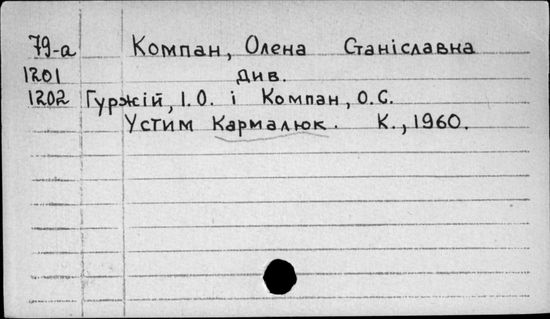 79-а Компан, Олена Станіславна
1201 див.
1202 Гуржій, І.О. і Компан, О.С.
Устим Кармалюк. К., 1960.